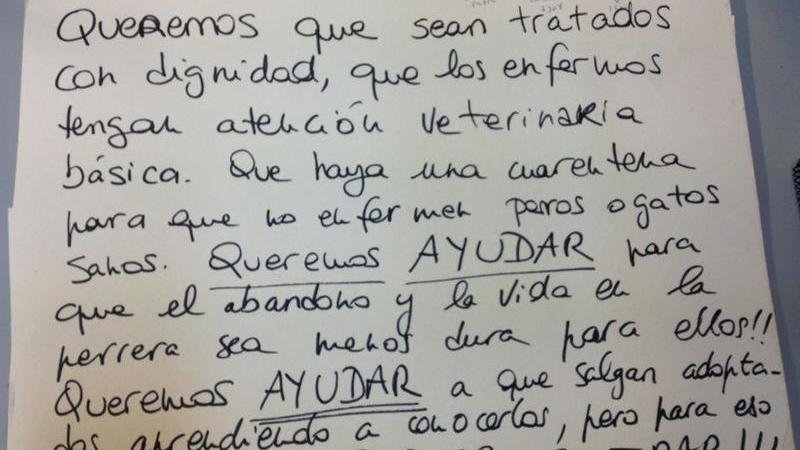 Queremos que sean tratados
con dignidad, que los enfermos
tengan atención veterinaria
básica. Que haya una cuarentena
para que no enfermen perros o gatos
sanos. Queremos AYUDAR para
que el abandono y la vida en la
perrera sea menos dura para ellos!!
Queremos AYUDAR a que salgan adopta-
dos aprendiendo a conocerlos, pero para eso